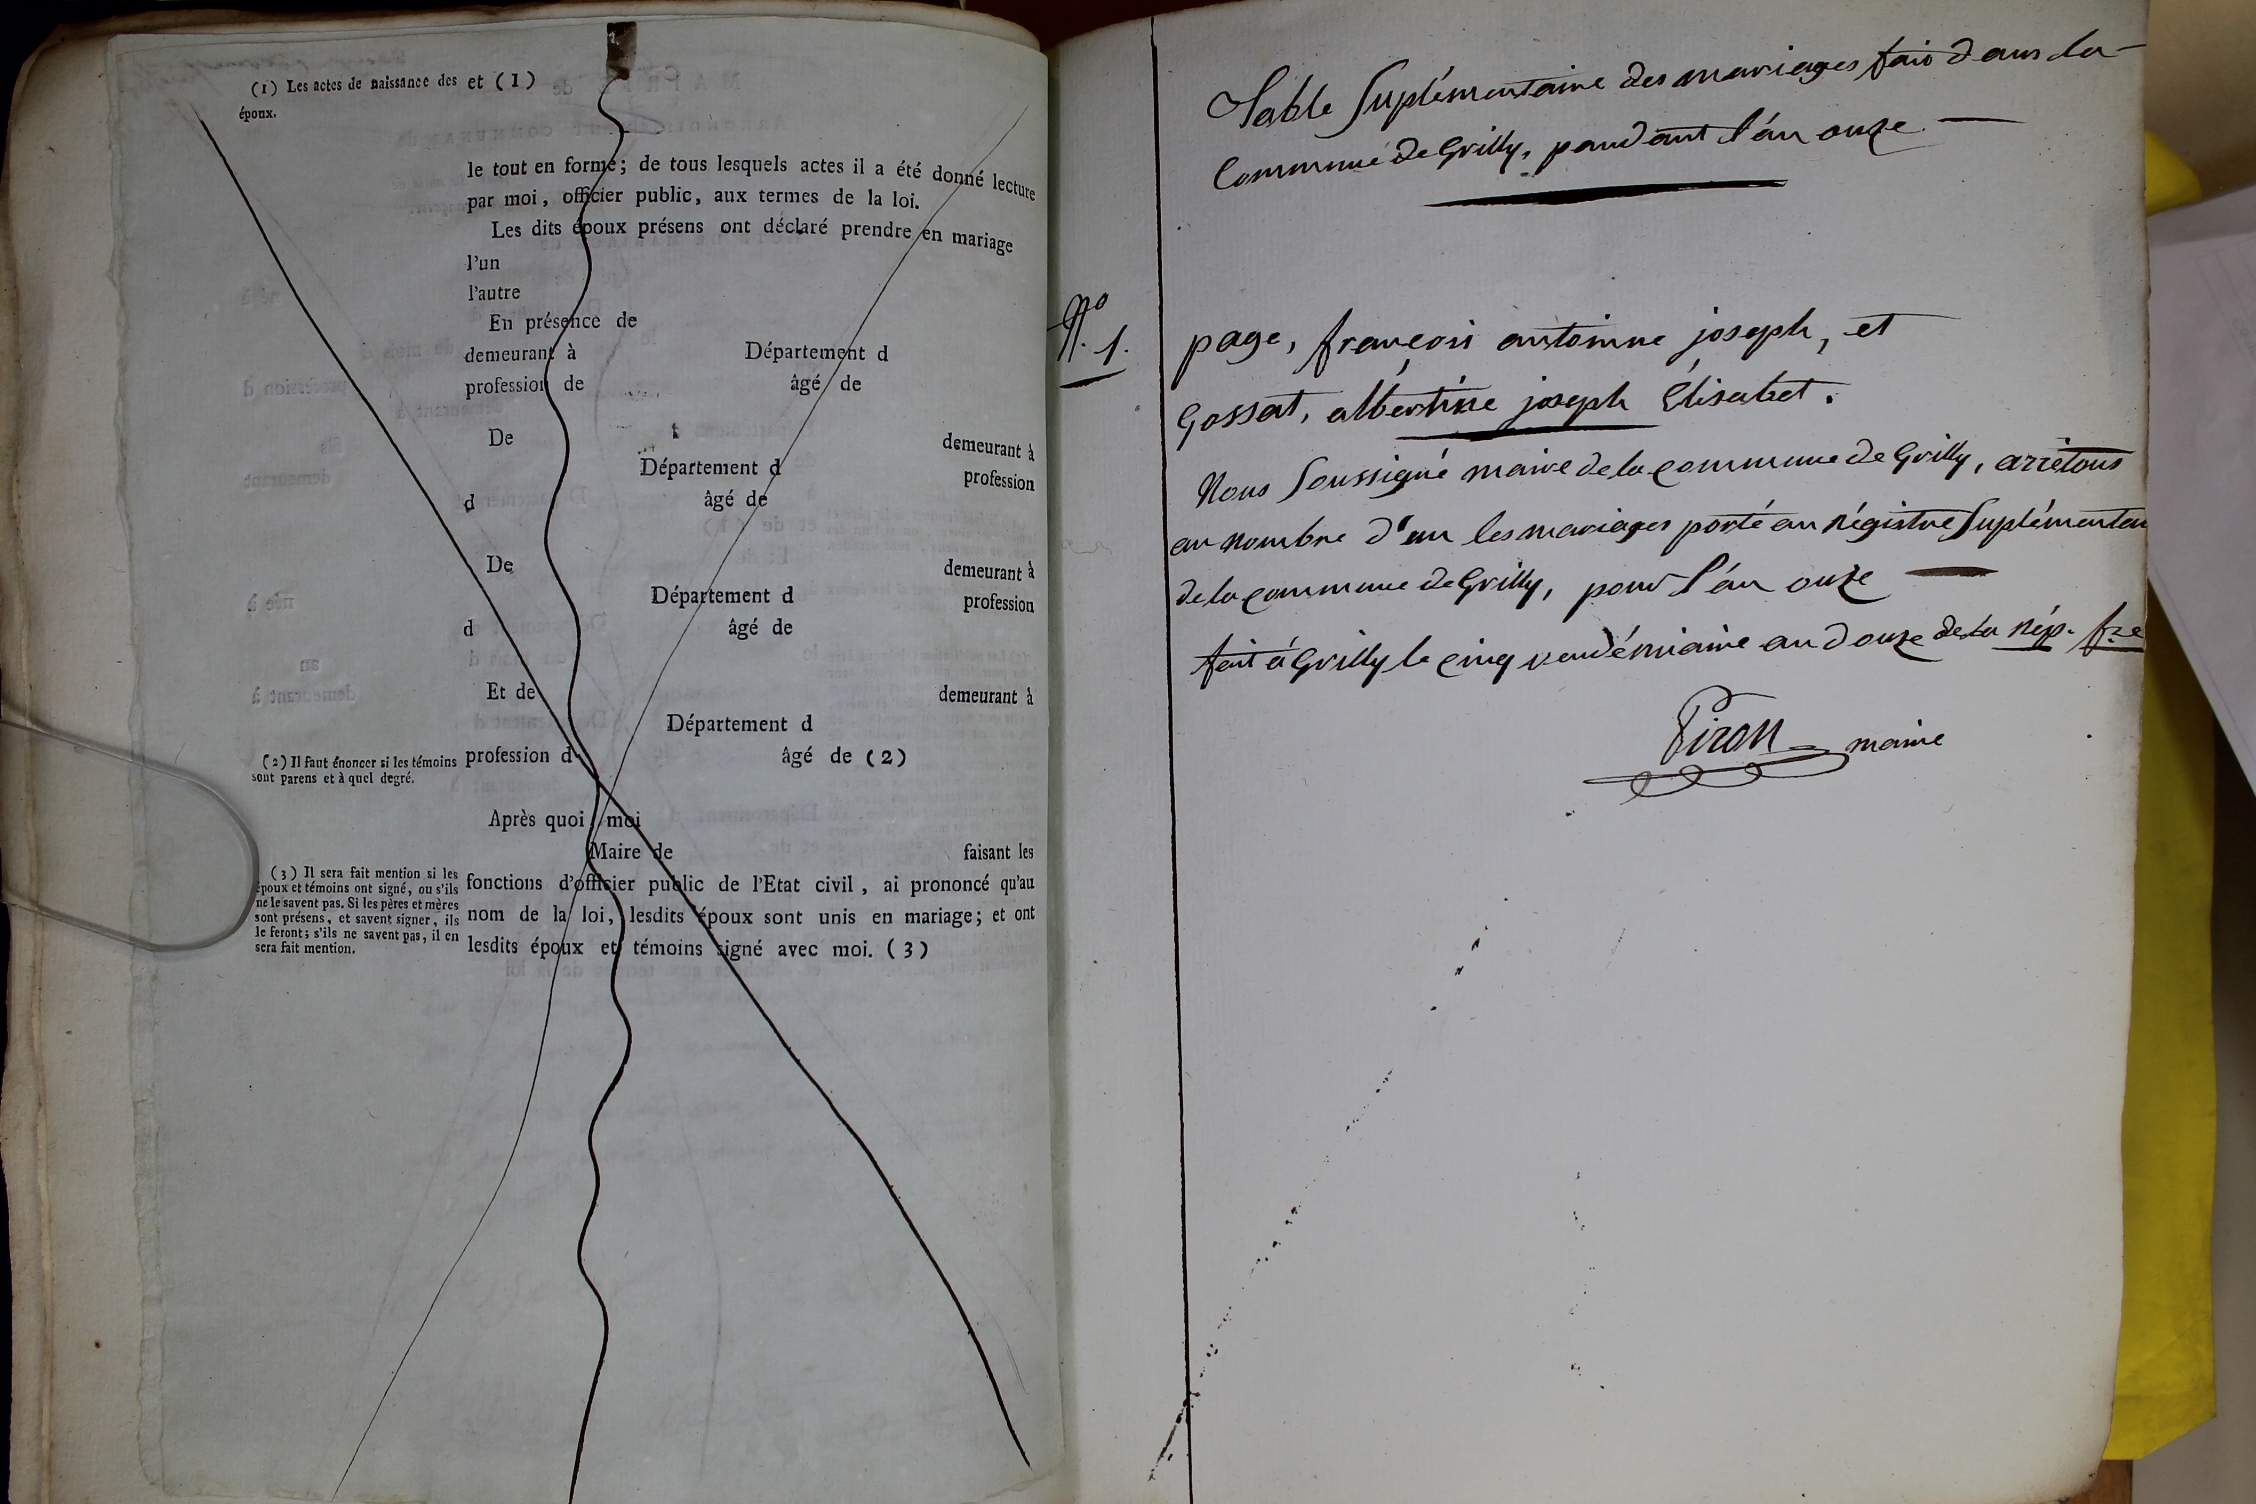 (1) Les actes de naissance des
époux.
et (1)
le tout en forme; de tous lesquels actes il a été donné lecture
par moi, officier public, aux termes de la loi.
Les dits époux présens ont déclaré prendre en mariage
l'un
l'autre
En présence de
demeurant à Département d
profession de âgé de
De demeurant à
Département d profession
d âgé de
De demeurant à
Département d profession
d âgé de
Et de demeurant à
Département d
profession d âgé de (2)
(2) Il faut énoncer si les témoins
sont parens et à quel degré.
Après quoi, moi
Maire de faisant les
fonctions d'officier public de l'Etat civil, ai prononcé qu'au
nom de la loi, lesdits époux sont unis en mariage; et ont
lesdits époux et témoins signé avec moi. (3)
(3) Il sera fait mention si les
époux et témoins ont signé, ou s'ils
ne le savent pas. Si les pères et mères
sont présens, et savent signer, ils
le feront; s'ils ne savent pas, il en
sera fait mention.
Table Suplémentaire des mariages fais dans la
Commune de Grilly, pendant l'án onze
No
1.
page, françois antoinne joseph, et
Gossat, albértine joseph Elisabet.
Nous Soussigné maire de la commune de Grilly, arrêtons
au nombre d'un les mariages porté au régistre Suplémentai
de la commune de Grilly, pour l'án onze
fait á Grilly le cinq vendémiaire an douze de la rép. fre
Piron maire